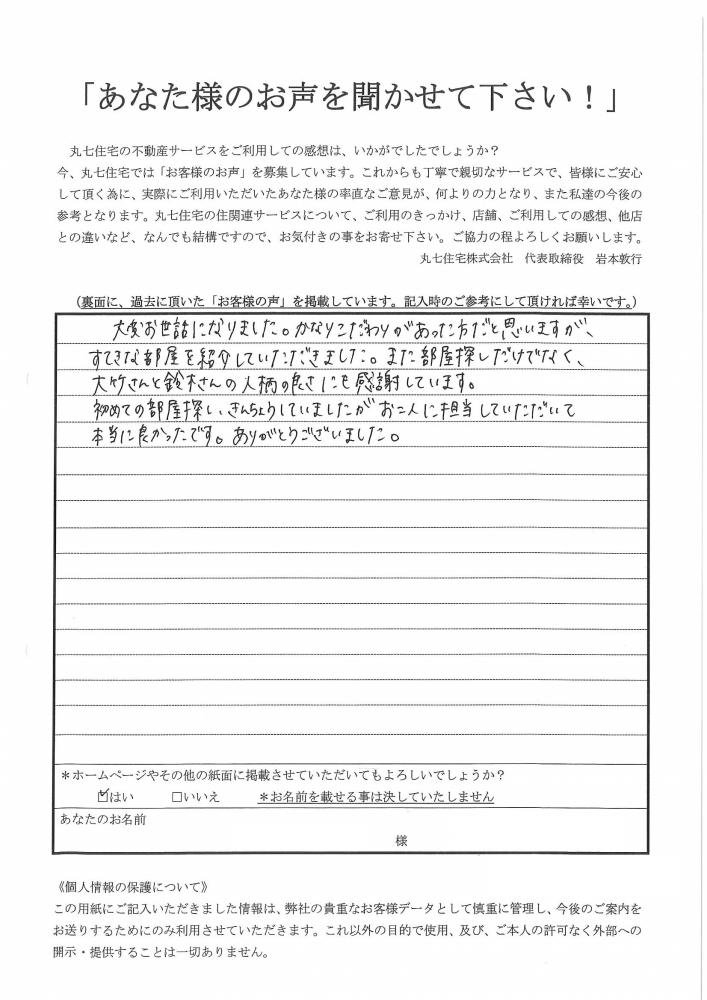 「あなた様のお声を聞かせて下さい！」
丸七住宅の不動産サービスをご利用しての感想は、いかがでしたでしょうか？
今、丸七住宅では「お客様のお声」を募集しています。これからも丁寧で親切なサービスで、皆様にご安心
して頂く為に、実際にご利用いただいたあなた様の率直なご意見が、何よりの力となり、また私達の今後の
参考となります。丸七住宅の住関連サービスについて、ご利用のきっかけ、店舗、ご利用しての感想、他店
との違いなど、なんでも結構ですので、お気付きの事をお寄せ下さい。ご協力の程よろしくお願いします。
丸七住宅株式会社　代表取締役　岩本敦行
（裏面に、過去に頂いた「お客様の声」を掲載しています。記入時のご参考にして頂ければ幸いです。）
大変お世話になりました。かなりこだわりがあった方だと思いますが、
すてきな部屋を紹介していただきました。また部屋探しだけでなく、
大竹さんと鈴木さんの人柄の良さにも感謝しています。
初めての部屋探し、きんちょうしていましたがお二人に担当していただいて
本当に良かったです。ありがとうございました。
＊ホームページやその他の紙面に掲載させていただいてもよろしいでしょうか？
☑はい　□いいえ　＊お名前を載せる事は決していたしません
あなたのお名前
様
《個人情報の保護について》
この用紙にご記入いただきました情報は、弊社の貴重なお客様データとして慎重に管理し、今後のご案内を
お送りするためにのみ利用させていただきます。これ以外の目的で使用、及び、ご本人の許可なく外部への
開示・提供することは一切ありません。